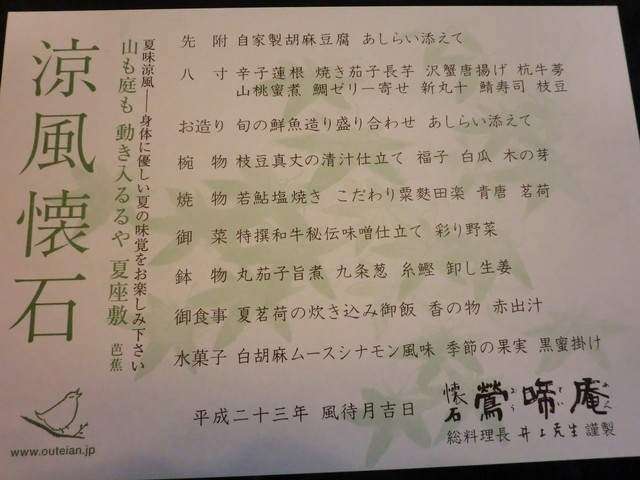 涼風懐石
夏味涼風――身体に優しい夏の味覚をお楽しみ下さい
山も庭も 動き入るるや 夏座敷 芭蕉
先附 自家製胡麻豆腐 あしらい添えて
八寸 辛子蓮根 焼き茄子長芋 沢蟹唐揚げ 杭牛蒡
山桃蜜煮 鯛ゼリー寄せ 新丸十 鯖寿司 枝豆
お造り 旬の鮮魚造り盛り合わせ あしらい添えて
椀物 枝豆真丈の清汁仕立て 福子 白瓜 木の芽
焼物 若鮎塩焼き こだわり粟麩田楽 青唐 茗荷
御菜 特撰和牛秘伝味噌仕立て 彩り野菜
鉢物 丸茄子旨煮 九条葱 糸鰹 卸し生姜
御食事 夏茗荷の炊き込み御飯 香の物 赤出汁
水菓子 白胡麻ムースシナモン風味 季節の果実 黒蜜掛け
平成二十三年 風待月吉日
懐石 鶯啼庵
おうていあん
総料理長 井上克生 謹製
www.outeian.jp